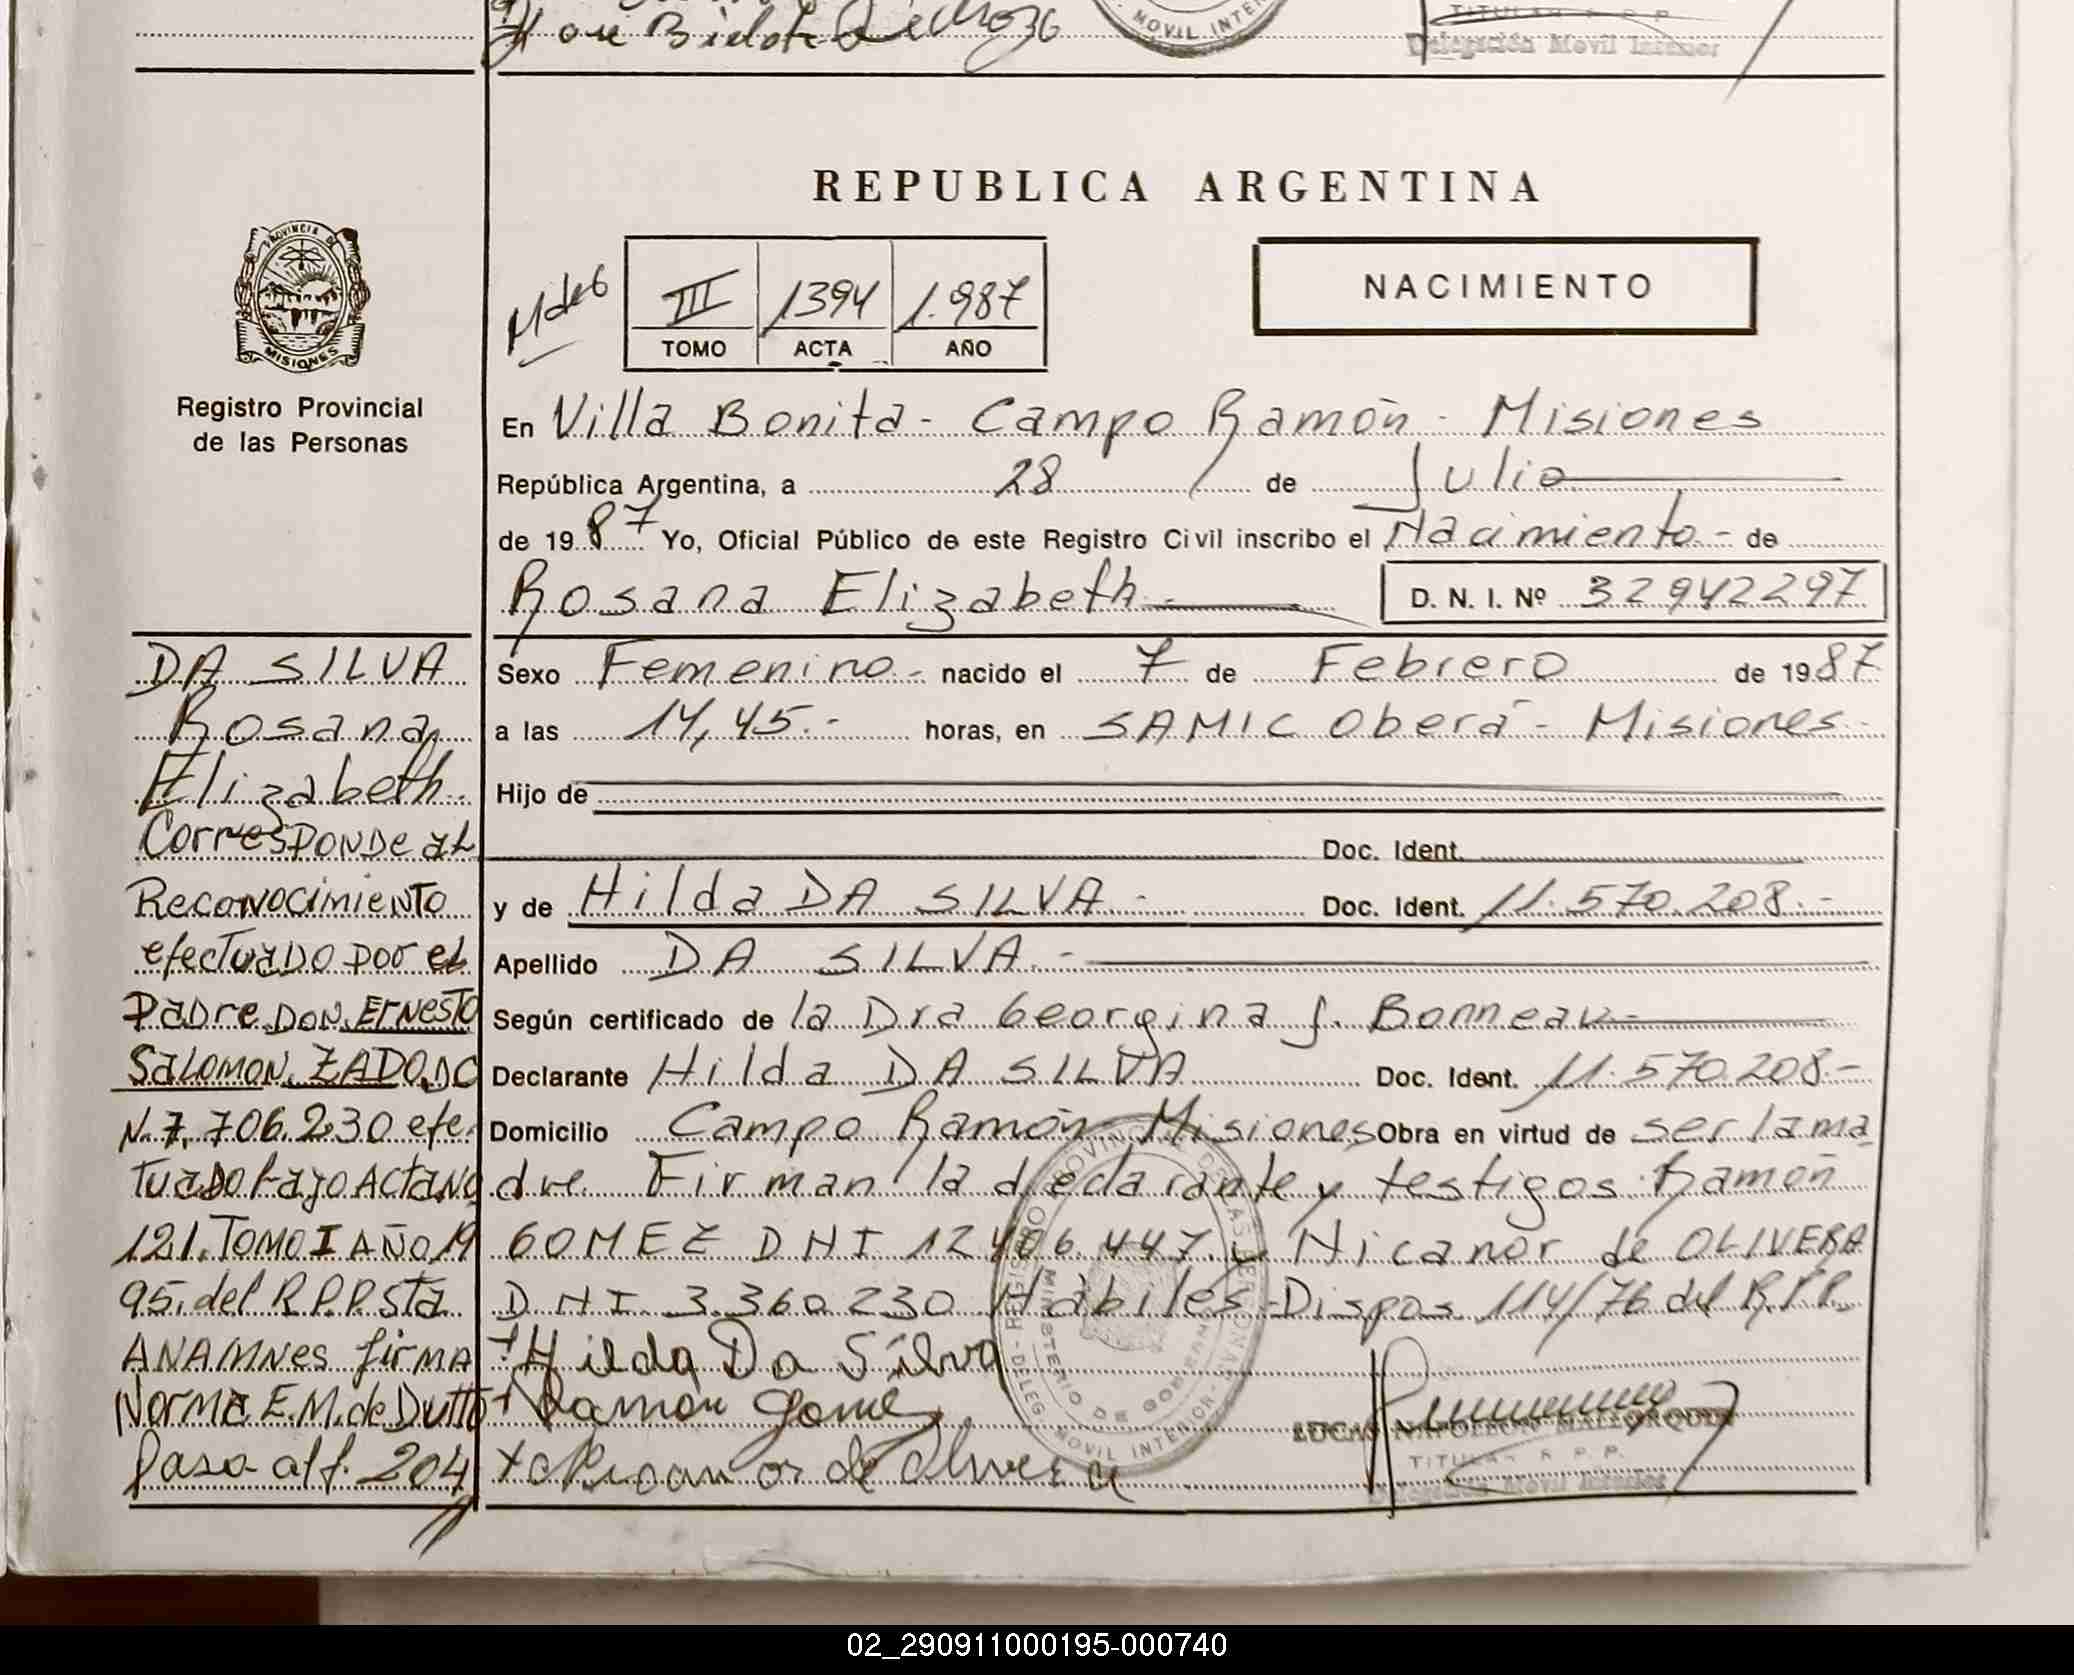 José
MOVIL INTER
TITULAR R.P.P.
Delegación Movil Interior
REPUBLICA ARGENTINA
PROVINCIA DE
MISIONES
Registro Provincial
de las Personas
III 1394 1.987
TOMO ACTA AÑO
NACIMIENTO
En Villa Bonita - Campo Ramón - Misiones
República Argentina, a 28 de Julio
de 1987 Yo, Oficial Público de este Registro Civil inscribo el Nacimiento - de
Rosana Elizabeth D. N. I. Nº 32942297
Sexo Femenino.- nacido el 7 de Febrero de 1987
a las 14,45.- horas, en SAMIC Oberá - Misiones-
Hijo de
Doc. Ident.
y de Hilda DA SILVA.- Doc. Ident. 11.570.208.-
Apellido DA SILVA.-
Según certificado de la Dra Georgina J. Bonneau-
Declarante Hilda DA SILVA Doc. Ident. 11.570.208.-
Domicilio Campo Ramón Misiones Obra en virtud de ser la ma
dre Firman la declarante y testigos Ramón
GOMEZ DNI 12406.447. y Nicanor de OLIVERA
DNI 3.360.230 Hábiles-Dispos 114/76 del R.P.P.
+ Hilda Da Silva
+ Ramón Gomez
x Nicanor de Olivera
LUCAS NAPOLEON MALLORQUIN
TITULAR R.P.P.
Delegación Movil Interior
REGISTRO PROVINCIAL DE LAS PERSONAS
MINISTERIO DE GOBIERNO
DELEG. MOVIL INTERIOR
DA SILVA
Rosana
Elizabeth.
Corresponde al
Reconocimiento
efectuado por el
Padre Don. Ernesto
Salomon. ZADO. DC
N.7.706.230 efe-
tuado bajo Acta No
121. Tomo I Año 19
95. del R.P.P. Sta
ANA MNes firma
Norma. E.M. de Dutto
Paso al f. 204
02_290911000195-000740